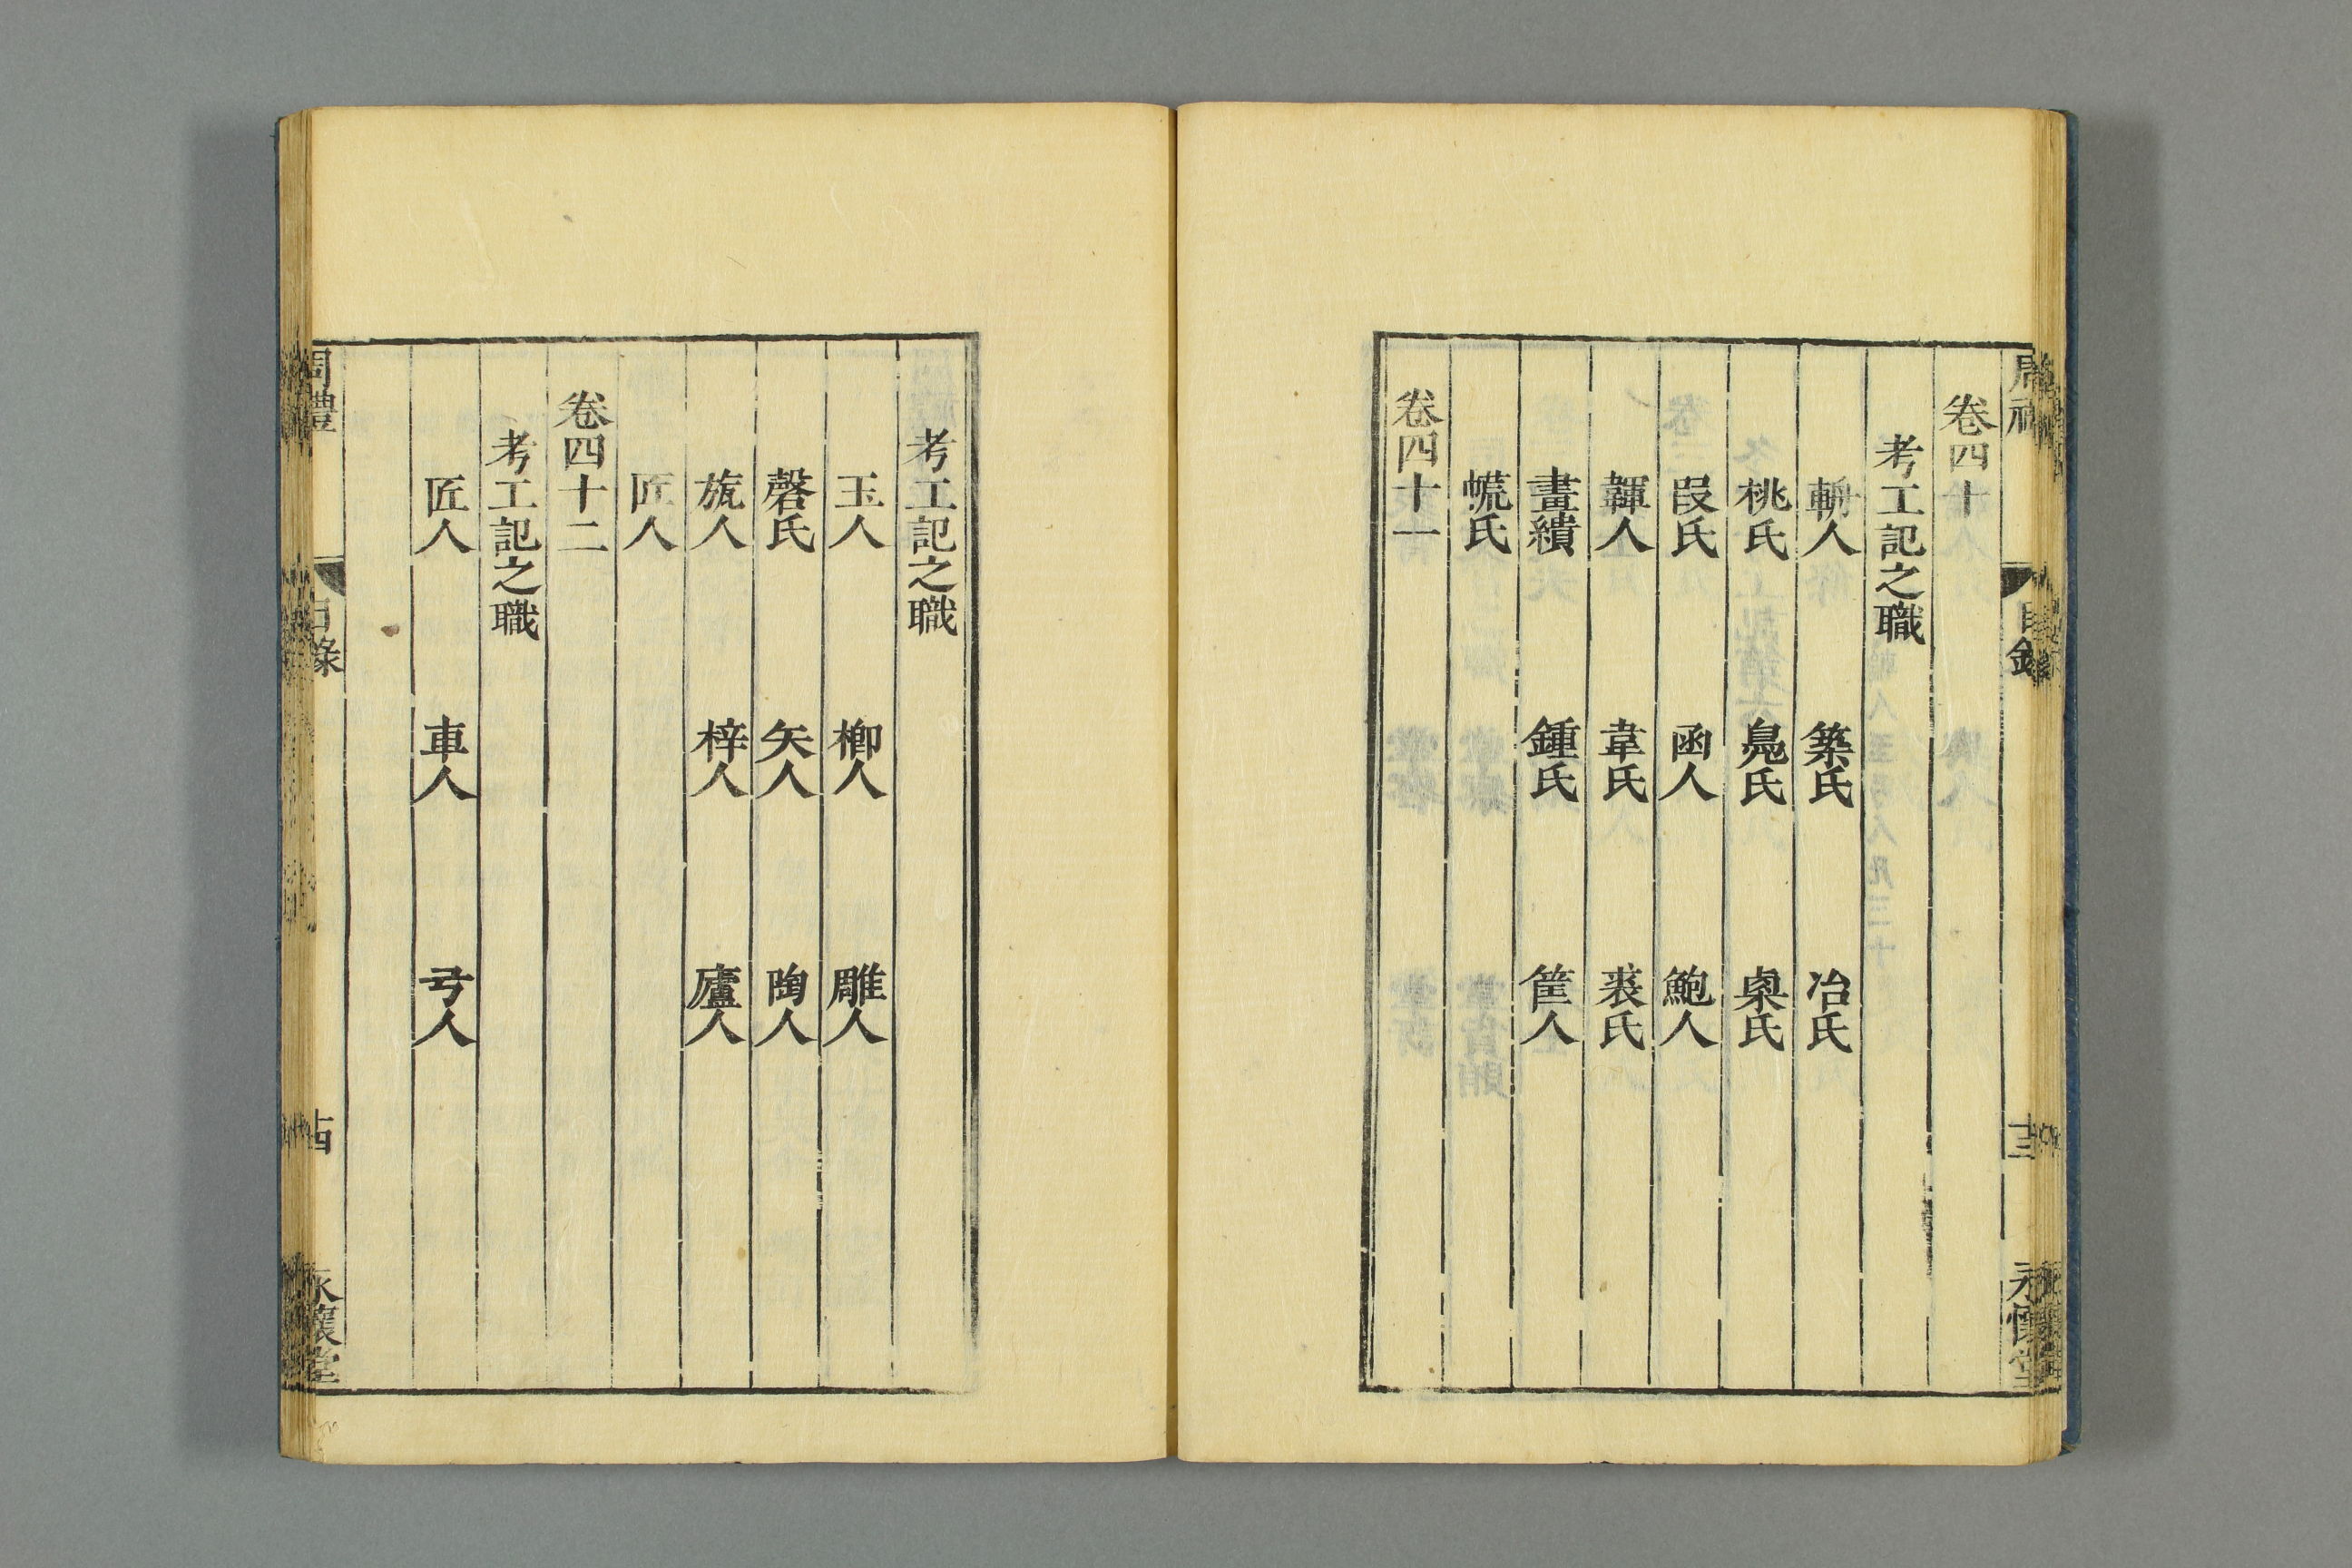 卷四十
考工記之職
輈人 築氏 冶氏
桃氏 鳧氏 㮚氏
段氏 函人 鮑人
韗人 韋氏 裘氏
畫繢 鍾氏 筐人
㡛氏
卷四十一
考工記之職
玉人 楖人 雕人
磬氏 矢人 陶人
旊人 梓人 廬人
匠人
卷四十二
考工記之職
匠人 車人 弓人
周禮 目錄 十四 永懷堂